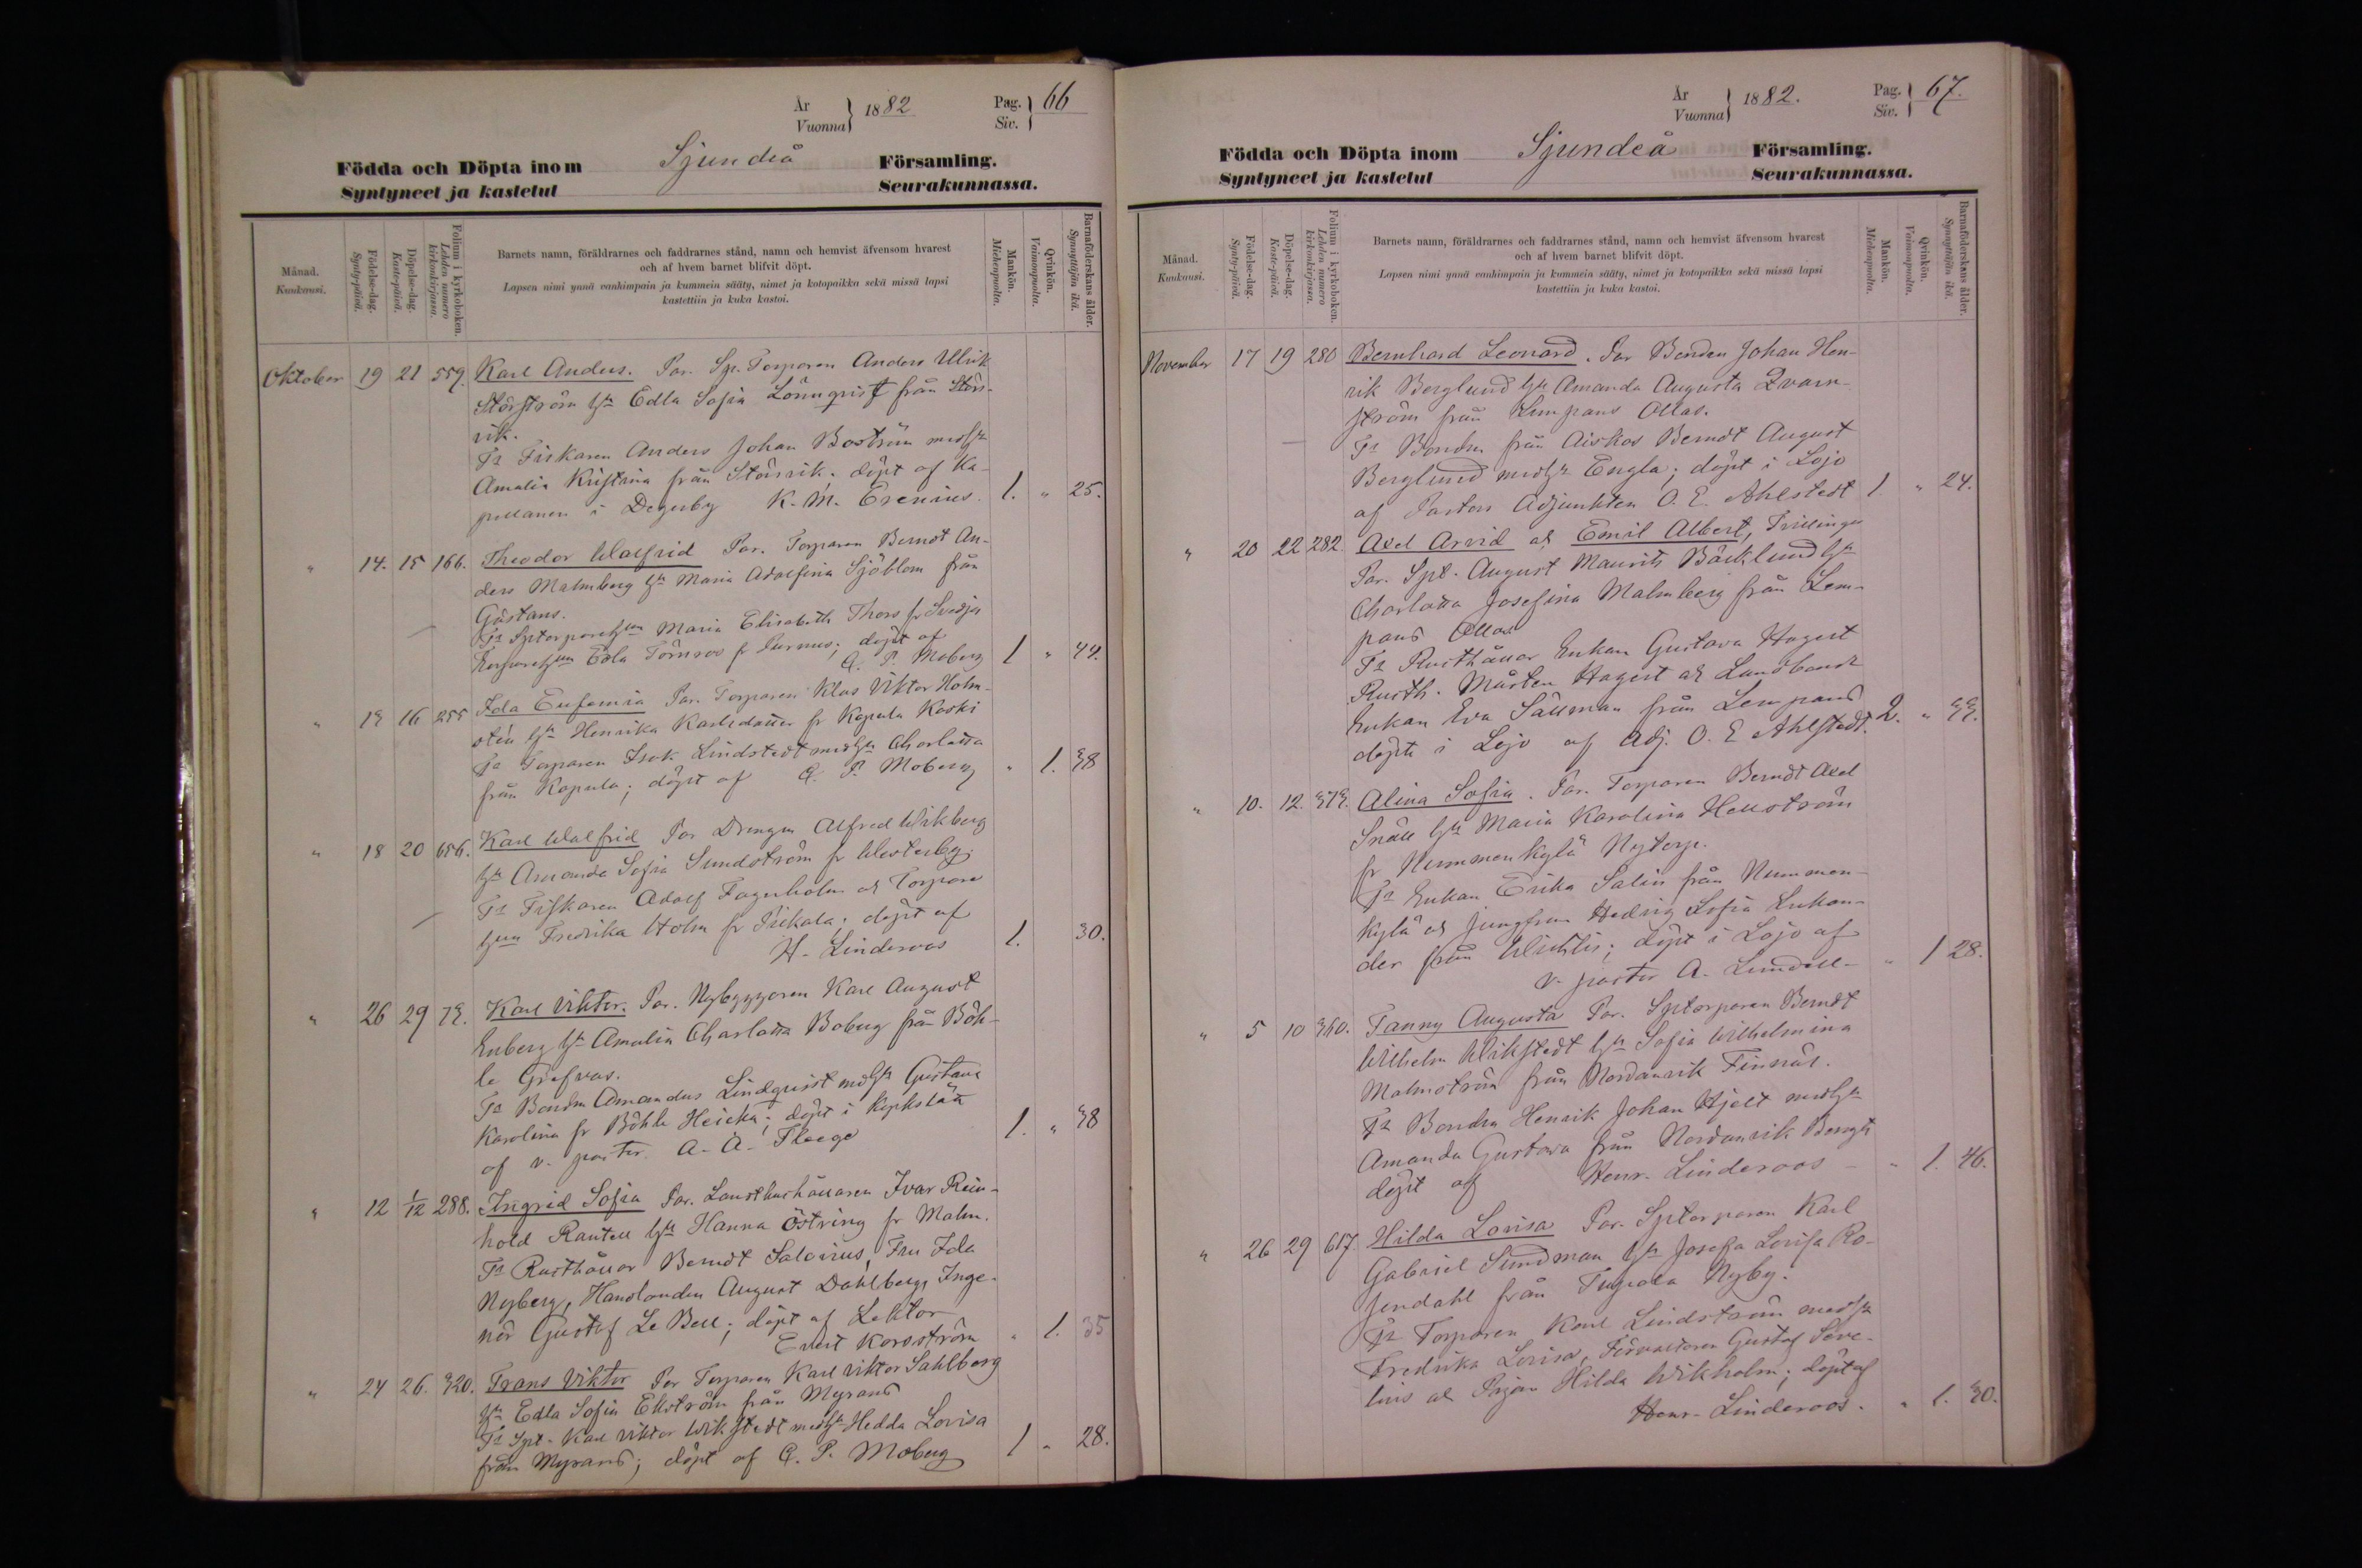 År
Vuonna } 1882
Pag.
Siv. } 66
Födda och Döpta inom Sjundeå Församling.
Syntyneet ja kastetut Seurakunnassa.
Månad.
Kuukausi.
Födelse-dag.
Synty-päivä.
Döpelse-dag.
Kaste-päivä.
Folium i kyrkoboken.
Lehden numero kirkonkirjassa.
Barnets namn, föräldrarnes och faddrarnes stånd, namn och hemvist äfvensom hvarest
och af hvem barnet blifvit döpt.
Lapsen nimi ynnä vanhimpain ja kummein sääty, nimet ja kotopaikka sekä missä lapsi
kastettiin ja kuka kastoi.
Mankön.
Miehenpuolta.
Qvinkön.
Vaimonpuolta.
Barnaföderskans ålder.
Synnyttäjän ikä.
Oktober 19 21 559. Karl Anders. Par. Sp. Torparen Anders Ulrik
Storström hu Edla Sofia Lönnqvist från Störs-
vik.
Fr Fiskaren Anders Johan Boström med hu
Amalia Kristina från Störsvik; döpt af Ka-
pellanen i Degerby K. M. Erenius. 1. " 25.
" 14. 15 166. Theodor Walfrid Par. Torparen Berndt An-
ders Malmberg hu Maria Adolfina Sjöblom från
Gästans.
Fr Sptorparehun Maria Elisabeth Thors fr Svedja
Edla Törnroos fr Purnus; döpt af
G. P. Moberg 1 " 44.
" 13 16 255 Ida Eufemia Par. Torparen Klas Viktor Holm-
stén hu Henrika Karlsdotter fr Kopula Koski
Fr Torparen Isak Lindstedt med hu Charlotta
från Kopula; döpt af G. P. Moberg " 1. 38
" 18 20 656. Karl Walfrid Par Drengen Alfred Wikberg
hu Amanda Sofia Sundström fr Westerby.
Fr Fiskaren Adolf Fagerholm ok Torpare
hun Fredrika Holm fr Pickala; döpt af
H. Linderoos 1. 30.
" 26 29 73. Karl Viktor. Par. Nybyggaren Karl August
Enberg hu Amalia Charlotta Boberg från Böh-
le Grefvas.
Fr Bonden Amandus Lindqvist med hu Gustava
Karolina fr Böhle Heicka; döpt i Kyrkslätt
af v. pastor. A. A. Floege 1. " 38
" 12 1/12 288. Ingrid Sofia Par. Landthushållaren Ivar Rein-
hold Rantell hu Hanna Östring fr Malm.
Fr Rusthållar Berndt Saloirus, Fru Ida
Nyberg, Handlanden August Dahlberg, Inge-
niör Gustaf Le Bell; döpt af Lektor
Evert Korsström " 1. 35
" 24 26. 320. Frans Viktor Par Torparen Karl Viktor Sahlberg
hu Edla Sofia Ekström från Myrans
Fr Spt. Karl Viktor Wikstedt med hu Hedda Lovisa
från Myrans; döpt af G. P. Moberg 1 " 28.
År
Vuonna } 1882.
Pag.
Siv. } 67.
Födda och Döpta inom Sjundeå Församling.
Syntyneet ja kastetut Seurakunnassa.
Månad.
Kuukausi.
Födelse-dag.
Synty-päivä.
Döpelse-dag.
Kaste-päivä.
Folium i kyrkoboken.
Lehden numero kirkonkirjassa.
Barnets namn, föräldrarnes och faddrarnes stånd, namn och hemvist äfvensom hvarest
och af hvem barnet blifvit döpt.
Lapsen nimi ynnä vanhimpain ja kummein sääty, nimet ja kotopaikka sekä missä lapsi
kastettiin ja kuka kastoi.
Mankön.
Miehenpuolta.
Qvinkön.
Vaimonpuolta.
Barnaföderskans ålder.
Synnyttäjän ikä.
November 17 19 280 Bernhard Leonard. Par Bonden Johan Hen-
rik Berglund hu Amanda Augusta Qvarn-
ström från Lempans Ollas.
Fr Bonden från Aiskos Berndt August
Berglund med hu Engla; döpt i Lojo
af Pastors Adjunkten O. E. Ahlstedt 1 " 24.
" 20 22 282. Axel Arvid ok Emil Albert, Tvillingar
Par. Spt. August Maurits Bäcklund hu
Charlotta Josefina Malmberg från Lem-
pans Ollas
Fr Rusthållar Enkan Gustava Hagert
Rusth. Mårten Hagert ok Landbonde
Enkan Eva Sallman från Lempans
döpta i Lojo af Adj. O. E Ahlstedt. 2. " 33.
" 10. 12. 373. Alina Sofia. Par. Torparen Berndt Axel
Snäll hu Maria Karolina Hellström
fr Nummenkylä Nytorp.
Fr Enkan Erika Salin från Nummen-
kylä ok Jungfrun Hedvig Sofia Lukan-
der från Wichtis; döpt i Lojo af
v. pastor A. Lundell " 1 28.
" 5 10 360. Fanny Augusta Par. Sptorparen Berndt
Wilhelm Wikstedt hu Sofia Wilhelmina
Malmström från Nordanvik Finnäs.
Fr Bonden Henrik Johan Hjelt med hu
Amanda Gustava från Nordanvik Bengts
döpt af Henr. Linderoos " 1. 46.
" 26 29 617. Hilda Lovisa Par. Sptorparen Karl
Gabriel Sundman hu Josefa Lovisa Ro-
sendahl från Tupala Nyby.
Fr Torparen Karl Lindström med hu
Fredrika Lovisa, Förvaltaren Gustaf Seve-
lius ok Pigan Hilda Wikholm; döpt af
Henr. Linderoos. " 1. 30.